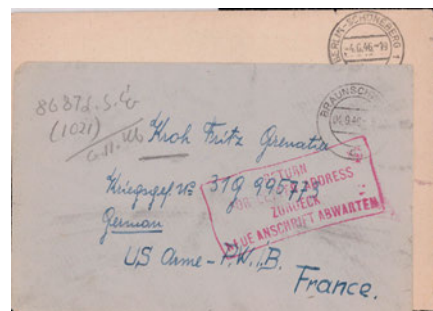 BERLIN-SCHÖNEBERG 1
-4.6.46.-19
BRAUNSCH
8687 L.S.Co
(1021)
Kroh Fritz Grenatie
Kriegsgef. No 31g 995773
German
US Arme - P.W.i.B.
France.
RETURN
FOR BETTER ADDRESS
ZURÜCK
NEUE ANSCHRIFT ABWARTEN